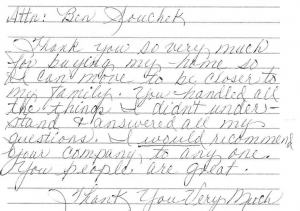 Attn: Ben Souchek
Thank you so very much
for buying my home so
I can move to be closer to
my family. You handled all
the things I didn't under-
stand & answered all my
questions. I would ricommend
your company to any one.
You people are great.
Thank You Very Much